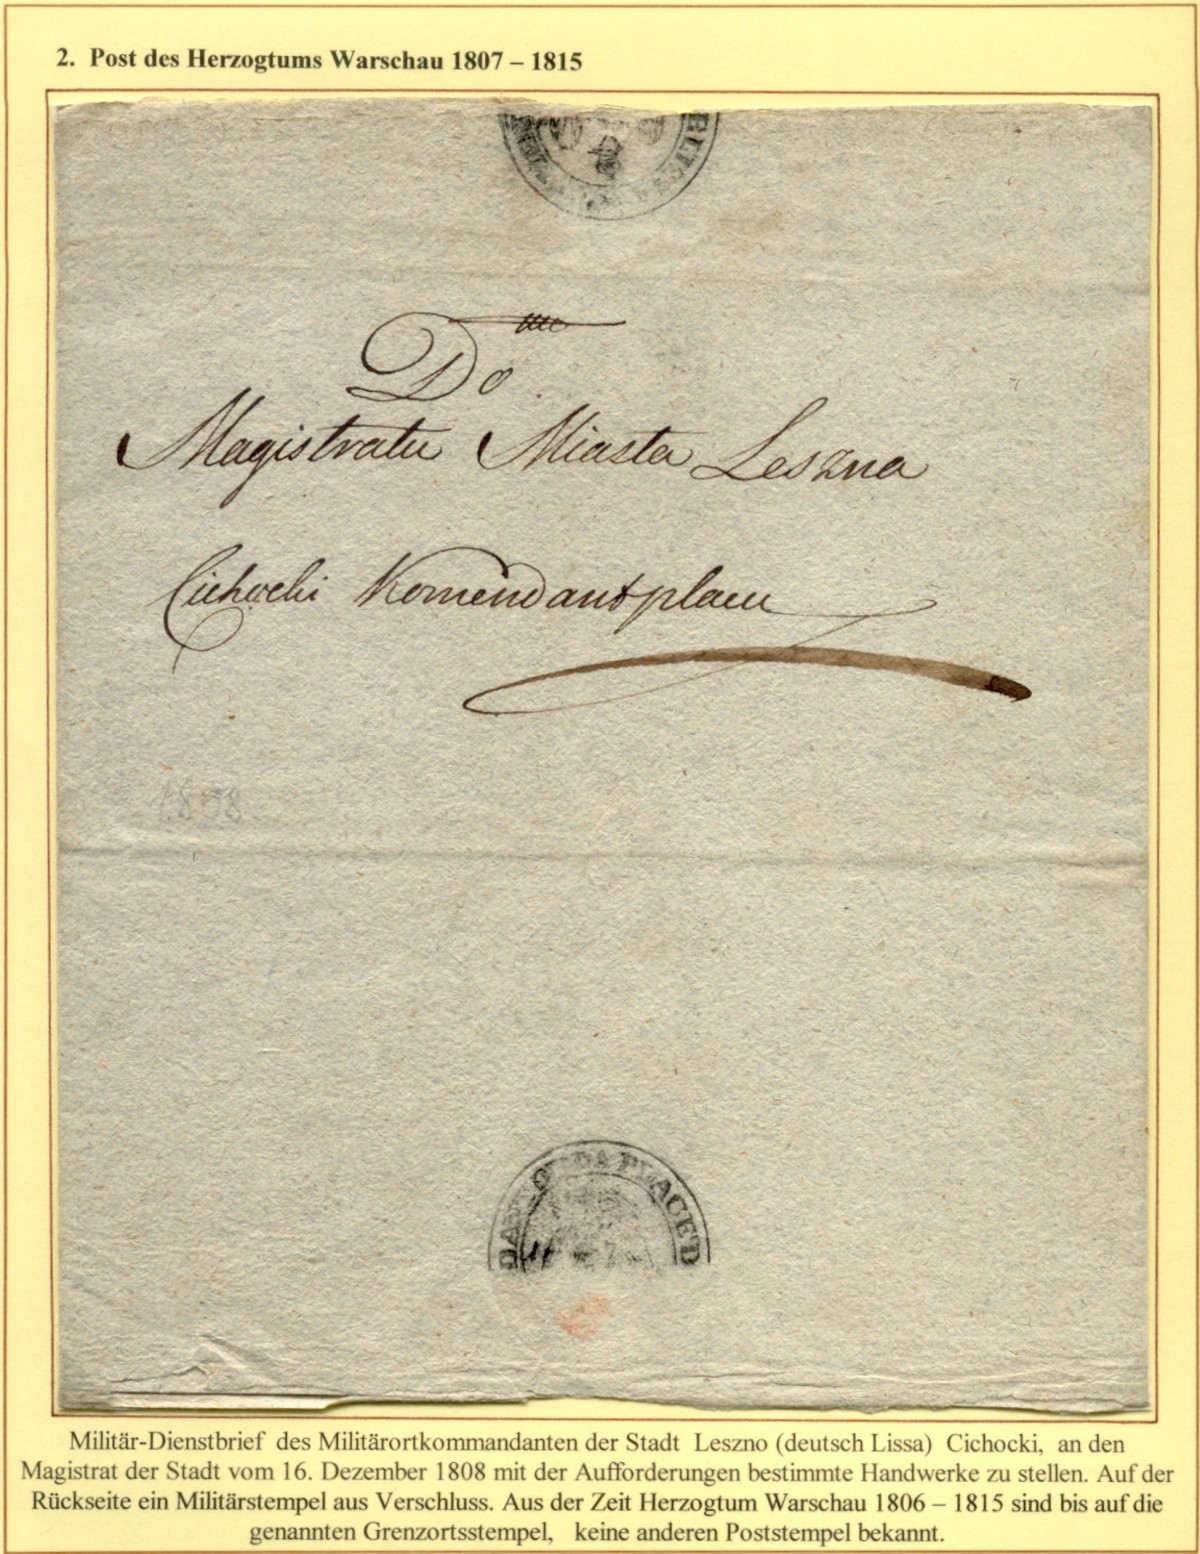 2. Post des Herzogtums Warschau 1807 – 1815
Do
Magistratu Miasta Leszna
Cichocki Komendant placu
1808
PLACE D
Militär-Dienstbrief des Militärortkommandanten der Stadt Leszno (deutsch Lissa) Cichocki, an den
Magistrat der Stadt vom 16. Dezember 1808 mit der Aufforderungen bestimmte Handwerke zu stellen. Auf der
Rückseite ein Militärstempel aus Verschluss. Aus der Zeit Herzogtum Warschau 1806 – 1815 sind bis auf die
genannten Grenzortsstempel, keine anderen Poststempel bekannt.